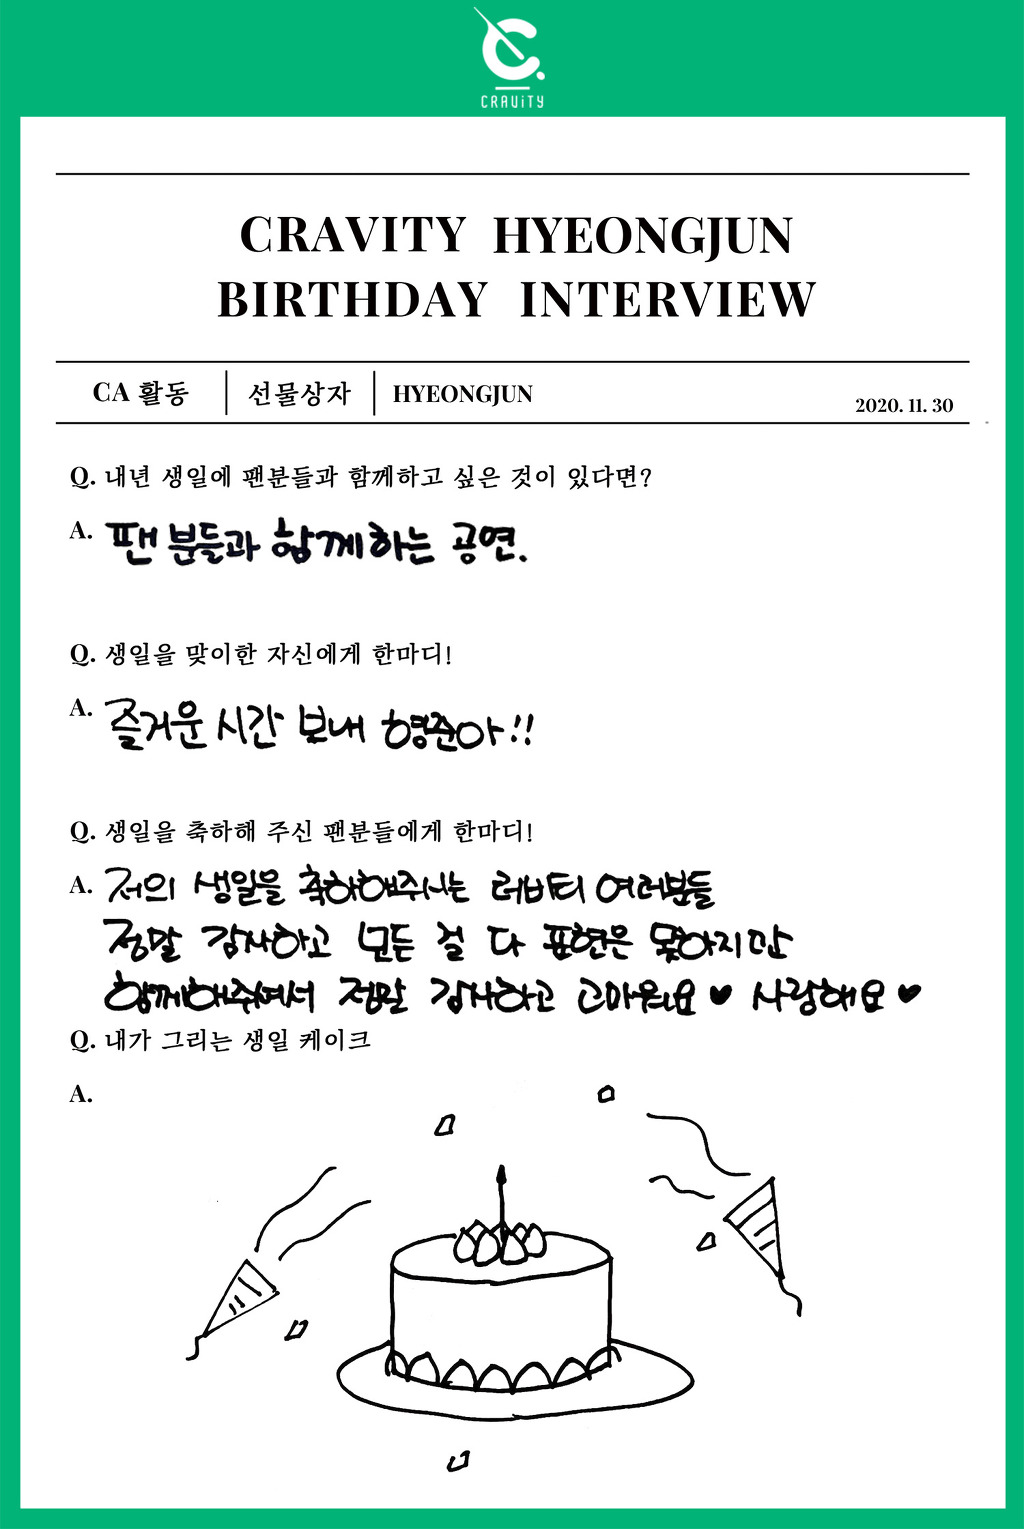 C.
CRAViTY
CRAVITY HYEONGJUN
BIRTHDAY INTERVIEW
CA 활동 선물상자 HYEONGJUN 2020. 11. 30
Q. 내년 생일에 팬분들과 함께하고 싶은 것이 있다면?
A. 팬분들과 함께하는 공연.
Q. 생일을 맞이한 자신에게 한마디!
A. 즐거운 시간 보내 형준아!!
Q. 생일을 축하해 주신 팬분들에게 한마디!
A. 저의 생일을 축하해주시는 러비티 여러분들
정말 감사하고 모든 걸 다 표현은 못하지만
함께해줘서 정말 감사하고 고마워요 ♥ 사랑해요 ♥
Q. 내가 그리는 생일 케이크
A.